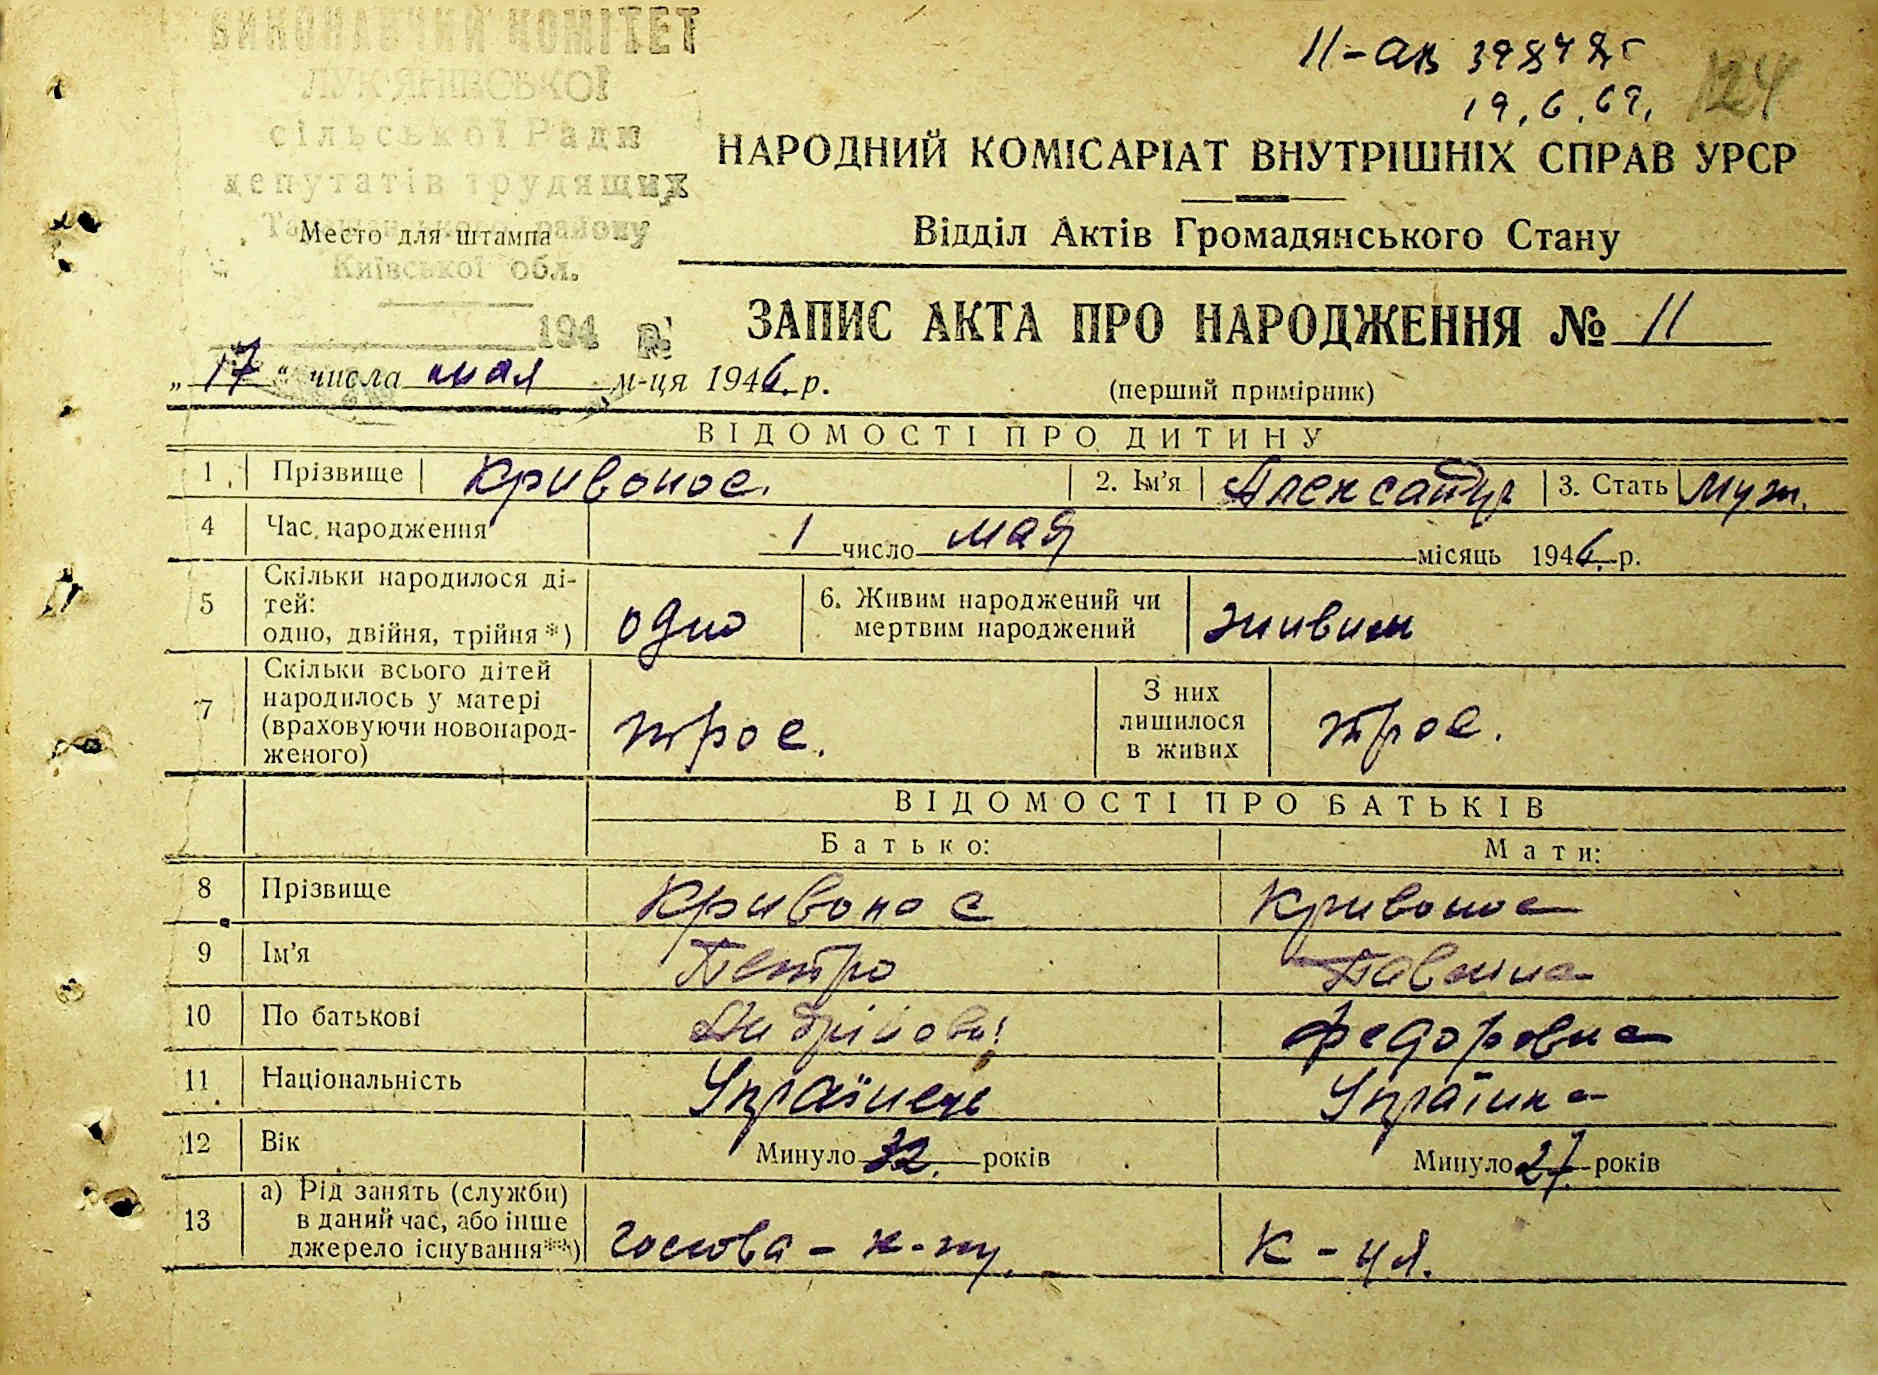 ВИКОНАВЧИЙ КОМІТЕТ
ЛУК'ЯНІВСЬКОЇ
сільської Ради
депутатів трудящих
Таращанського району
Київської обл.
Место для штампа
194 р.
II-АВ
19.6.69.
124
НАРОДНИЙ КОМІСАРІАТ ВНУТРІШНІХ СПРАВ УРСР
Відділ Актів Громадянського Стану
ЗАПИС АКТА ПРО НАРОДЖЕННЯ № 11
„17“ числа мая м-ця 1946. р.
(перший примірник)
ВІДОМОСТІ ПРО ДИТИНУ
1 Прізвище Кривонос. 2. Ім'я Александр 3. Стать Муж.
4 Час народження 1 число мая місяць 1946. р.
5 Скільки народилося ді-
тей:
одно, двійня, трійня*) одно 6. Живим народжений чи
мертвим народжений живим
7 Скільки всього дітей
народилось у матері
(враховуючи новонарод-
женого) трое. З них
лишилося
в живих трое.
ВІДОМОСТІ ПРО БАТЬКІВ
Батько: Мати:
8 Прізвище Кривонос Кривонос
9 Ім'я Петро Павлина
10 По батькові Федоровна
11 Національність Українець Українка
12 Вік Минуло 32. років Минуло 27. років
13 а) Рід занять (служби)
в даний час, або інше
джерело існування**) голова - к-пу. к - ця.